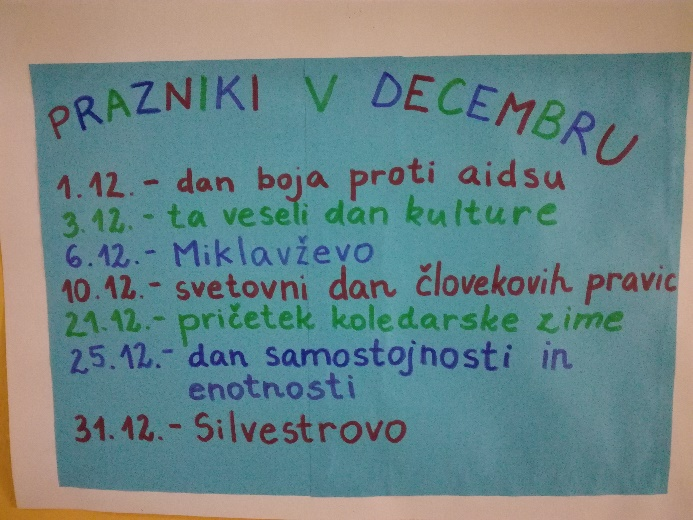 PRAZNIKI V DECEMBRU
1.12. - dan boja proti aidsu
3.12. - ta veseli dan kulture
6.12. - Miklavževo
10.12. - svetovni dan človekovih pravic
21.12. - pričetek koledarske zime
25.12. - dan samostojnosti in
enotnosti
31.12. - Silvestrovo